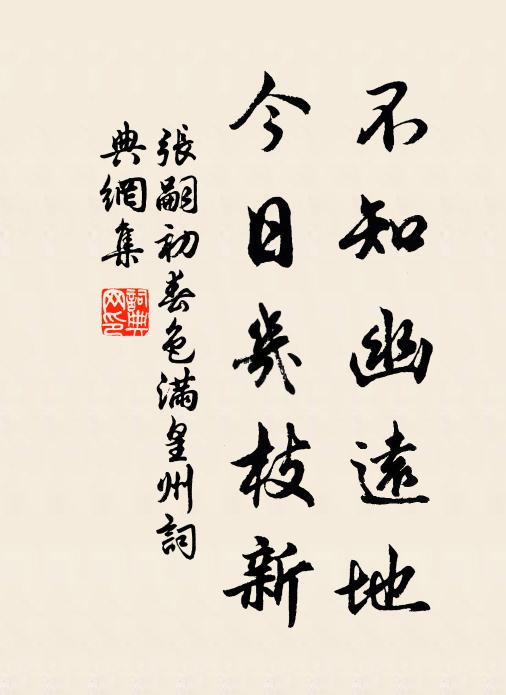 不知幽遠地
今日幾枝新
張嗣初春色滿皇州詞
典網集
詞典
网印